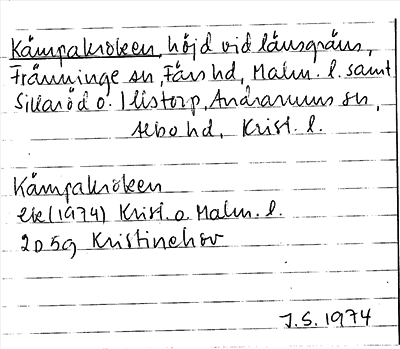 Kämpakröken, höjd vid länsgräns,
Tranninge sn, Färs hd, Malm. l. samt
Sillaröd o. Illstorp, Andrarums sn,
Albo hd, Krist. l.
Kämpakröken
ek (1974) Krist. o. Malm. l.
2D 5g Kristinehov
J.S. 1974